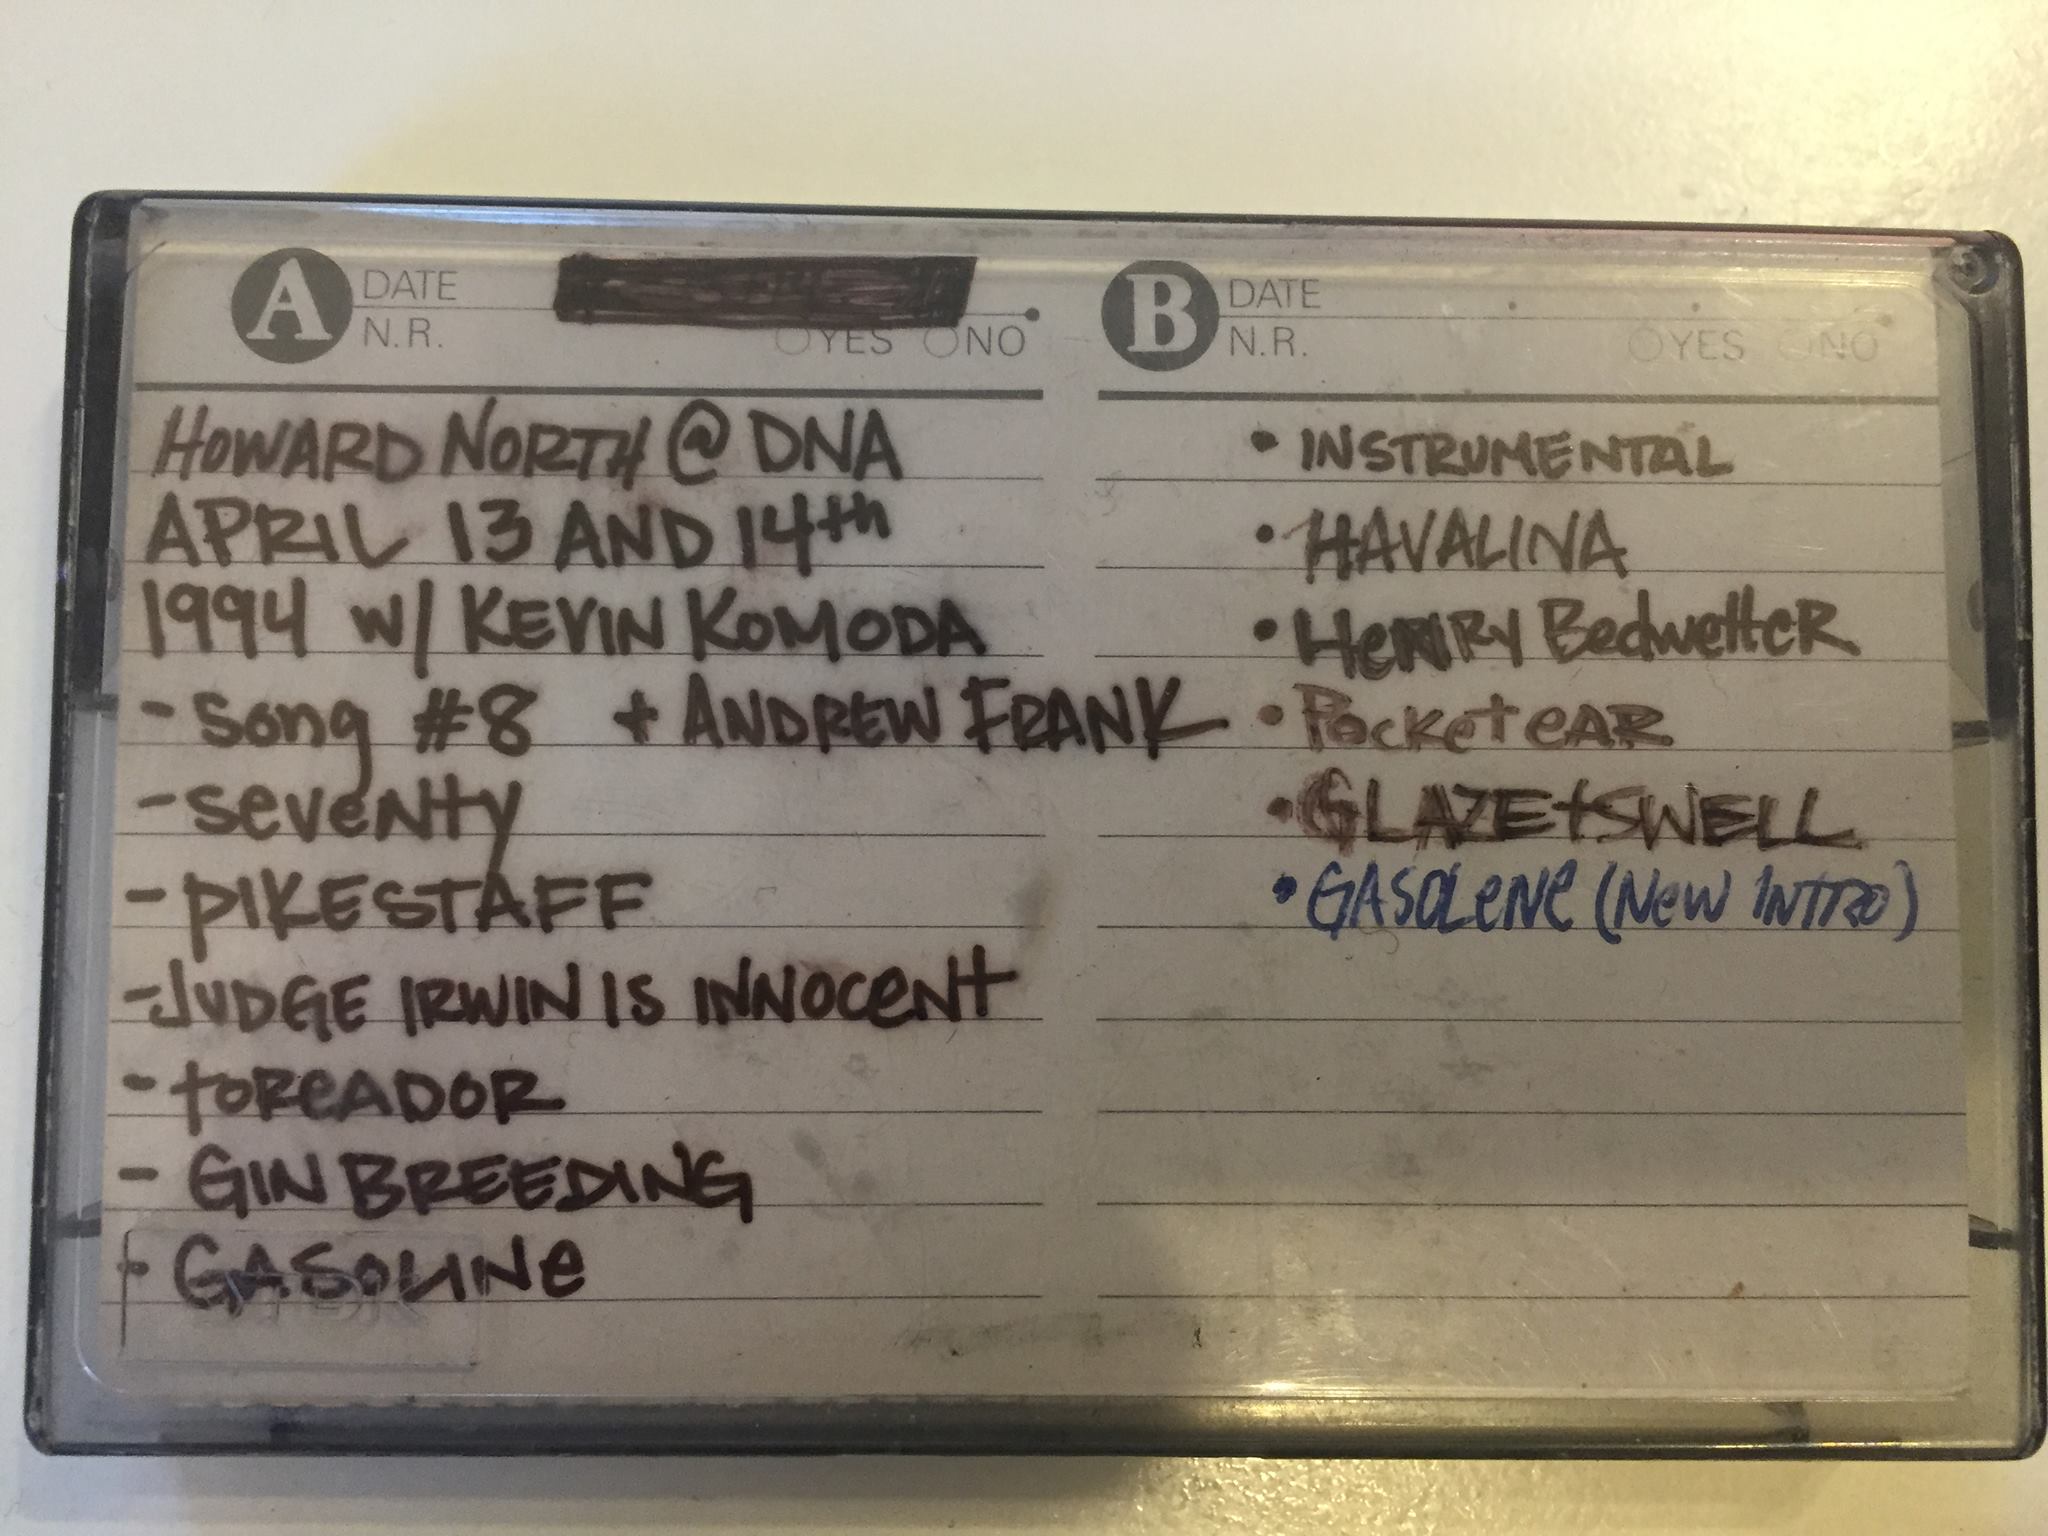 A DATE
N.R. YES NO
HOWARD NORTH @ DNA
APRIL 13 AND 14th
1994 w/ KEVIN KOMODA
- Song #8 + ANDREW FRANK
- Seventy
- PIKESTAFF
- JUDGE IRWIN IS INNOCENT
- TOREADOR
- GIN BREEDING
- GASOLINE
TDK
B DATE
N.R. YES NO
• INSTRUMENTAL
• HAVALINA
• HENRY BedwetteR
• Pocket EAR
• GLAZE + SWELL
• GASOLENE (NEW INTRO)